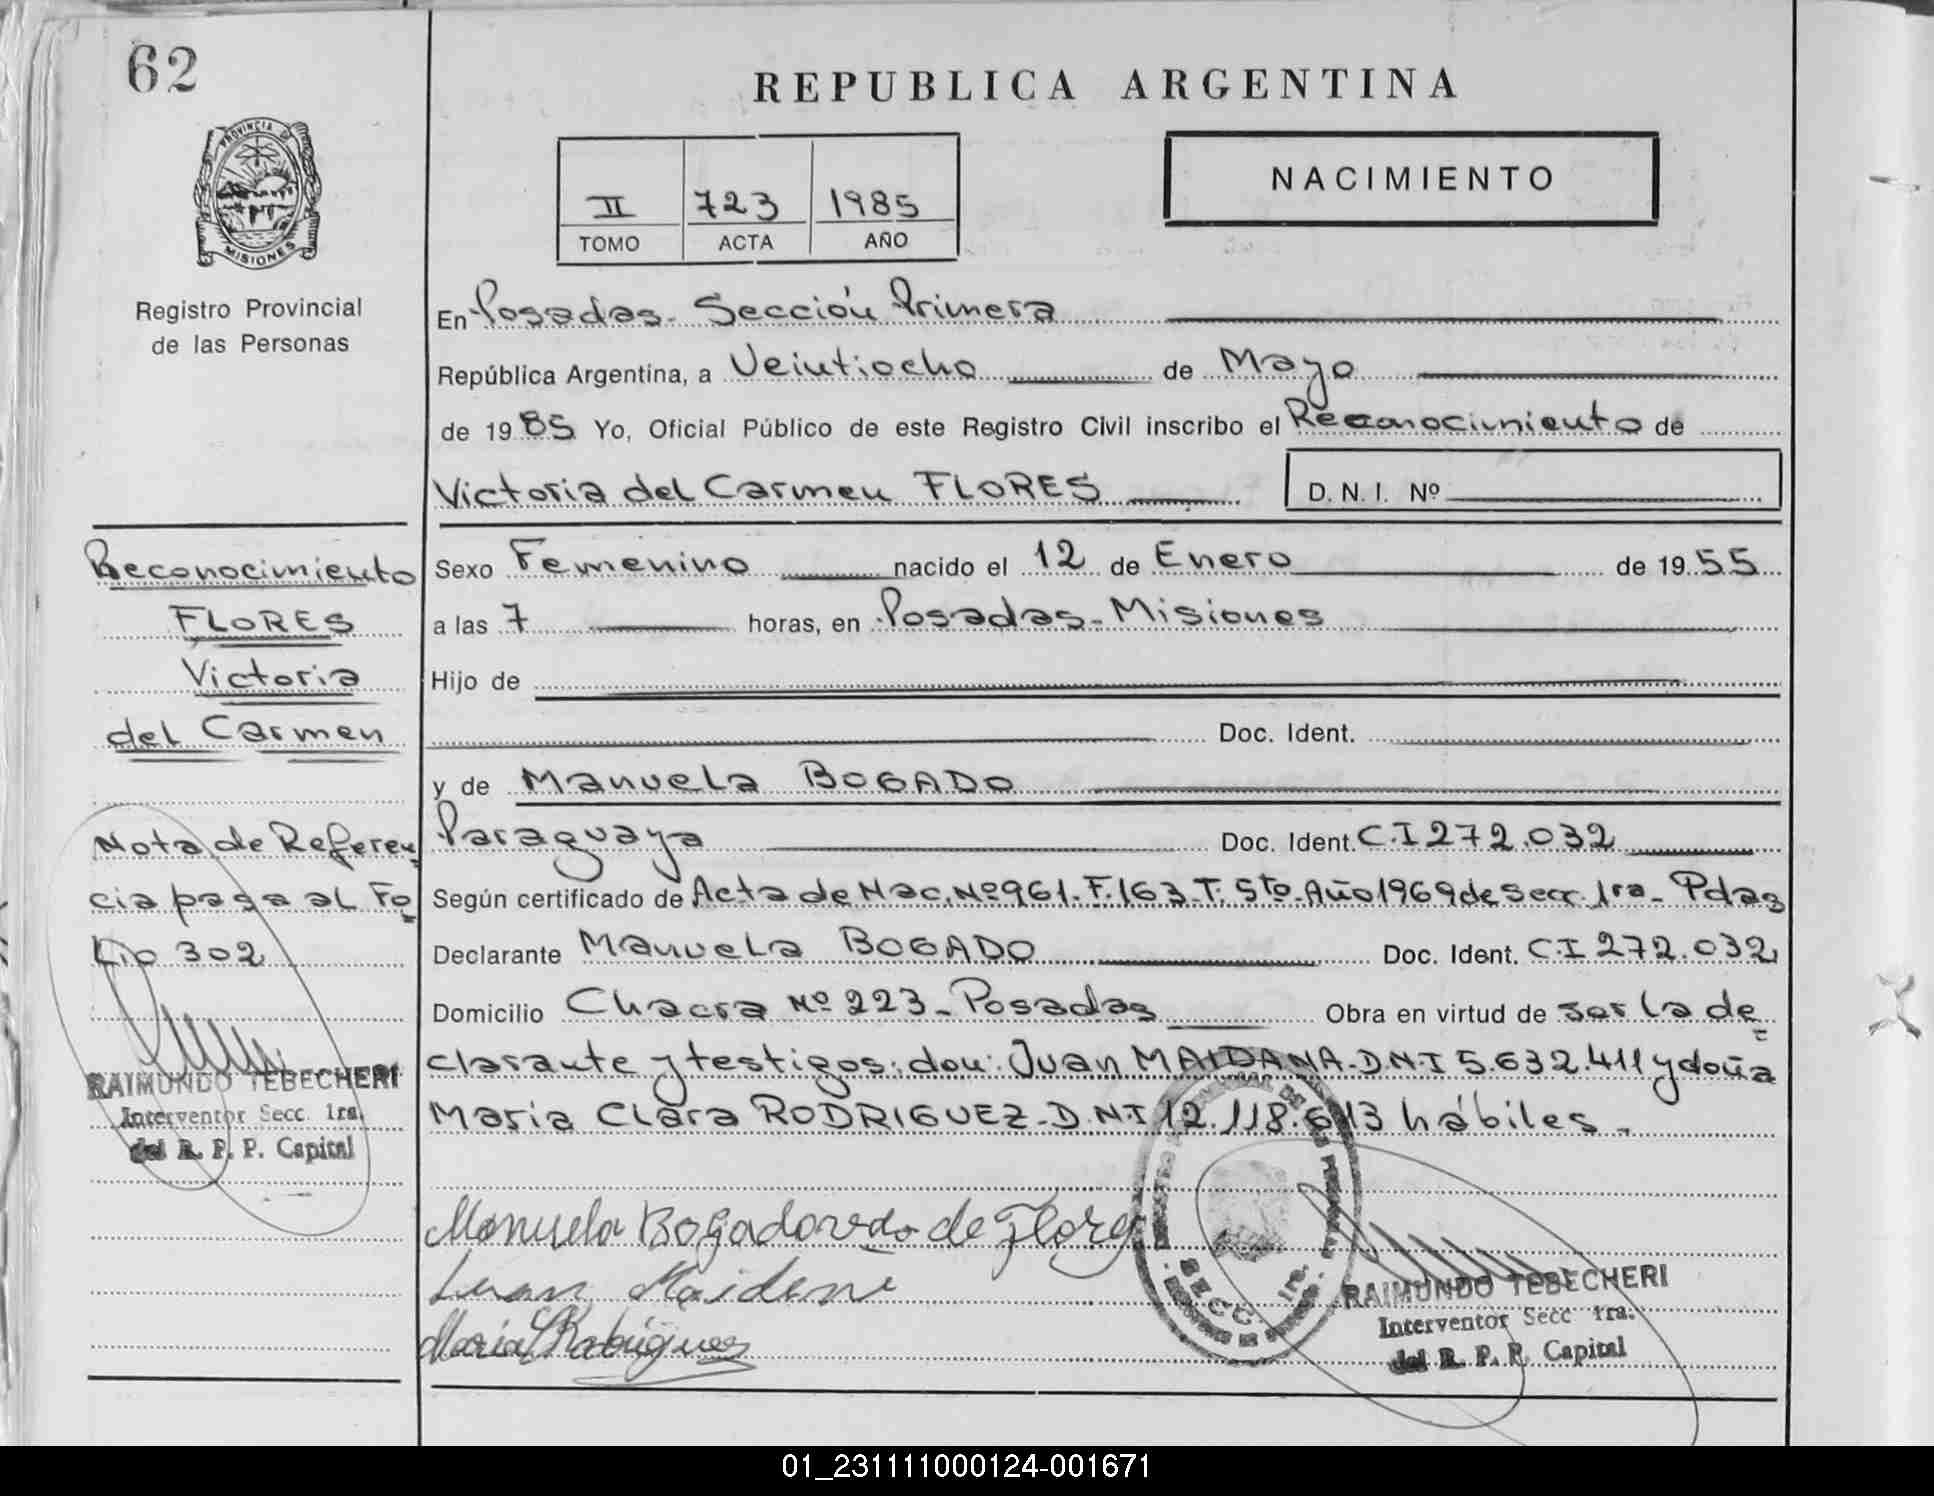 62
REPUBLICA ARGENTINA
PROVINCIA DE
MISIONES
Registro Provincial
de las Personas
II 723 1985
TOMO ACTA AÑO
NACIMIENTO
En Posadas - Sección Primera
República Argentina, a Veintiocho de Mayo
de 1985 Yo, Oficial Público de este Registro Civil inscribo el Reconocimiento de
Victoria del Carmen FLORES D. N. I. Nº
Sexo Femenino nacido el 12 de Enero de 1955
a las 7 horas, en Posadas - Misiones
Hijo de
Doc. Ident.
y de Manuela BOGADO
Paraguaya Doc. Ident. C.I 272.032
Según certificado de Acta de Nac. Nº 961. F. 163. T. 5to. Año 1969 de Secc. 1ra - Pdas
Declarante Manuela BOGADO Doc. Ident. C.I 272.032
Domicilio Chacra Nº 223 - Posadas Obra en virtud de ser la de
clarante y testigos: don: Juan MAIDANA - D.N.I 5.632.411 y doña
Maria Clara RODRIGUEZ - D.N.I 12.118.613 hábiles.
Manuela Bogado de Flores
Juan Maidana
Maria C Rodriguez
SECC. 1ra.
RAIMUNDO TEBECHERI
Interventor Secc 1ra.
del R. P. P. Capital
Reconocimiento
FLORES
Victoria
del Carmen
Nota de Referen
cia pasa al Fo
lio 302
RAIMUNDO TEBECHERI
Interventor Secc. 1ra.
del R. P. P. Capital
01_231111000124-001671